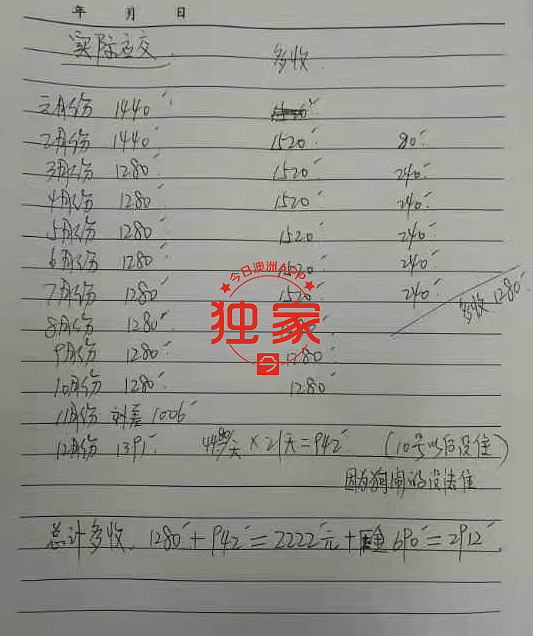 年 月 日
实际应交 多收
元月份 1440
2月份 1440 1520 80
3月份 1280 1520 240
4月份 1280 1520 240
5月份 1280 1520 240
6月份 1280 1520 240
7月份 1280 1520 240
多收 1280
8月份 1280
9月份 1280 1280
10月份 1280 1280
11月份 1006
12月份 1391 /天×21天=942 (10号以后没住)
因为狗闹的没法住
总计多收 1280+942=2222元+ 690=2912
今日澳洲APP
独家